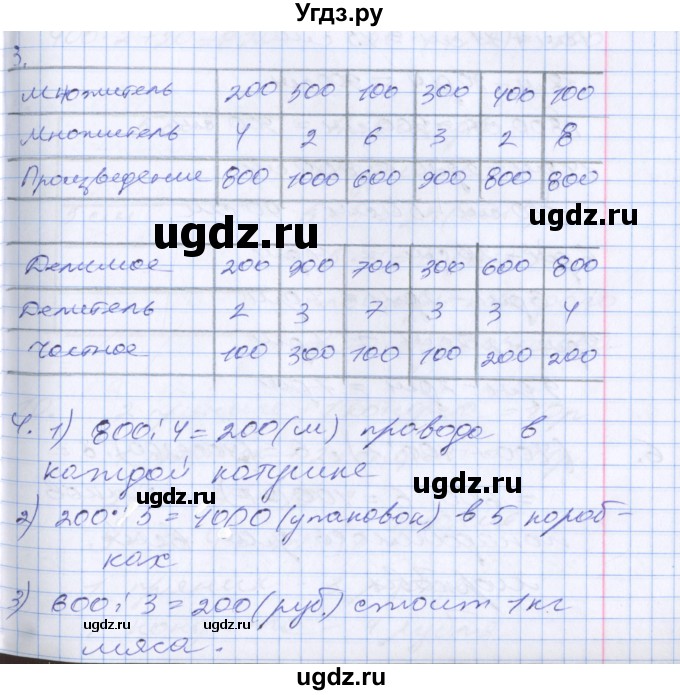 Угдз.ру
3.
Множитель 200 500 100 300 400 100
Множитель 4 2 6 3 2 8
Произведение 800 1000 600 900 800 800
ugdz.ru
ugdz.ru
Делимое 200 900 700 300 600 800
Делитель 2 3 7 3 3 4
Частное 100 300 100 100 200 200
4. 1) 800:4=200(м) провода в
каждой катушке
ugdz.ru ugdz.ru
2) 200·5=1000(упаковок) в 5 короб-
ках
3) 600:3=200(руб.) стоит 1кг
ugdz.ru ugdz.ru
мяса.
ugdz.ru